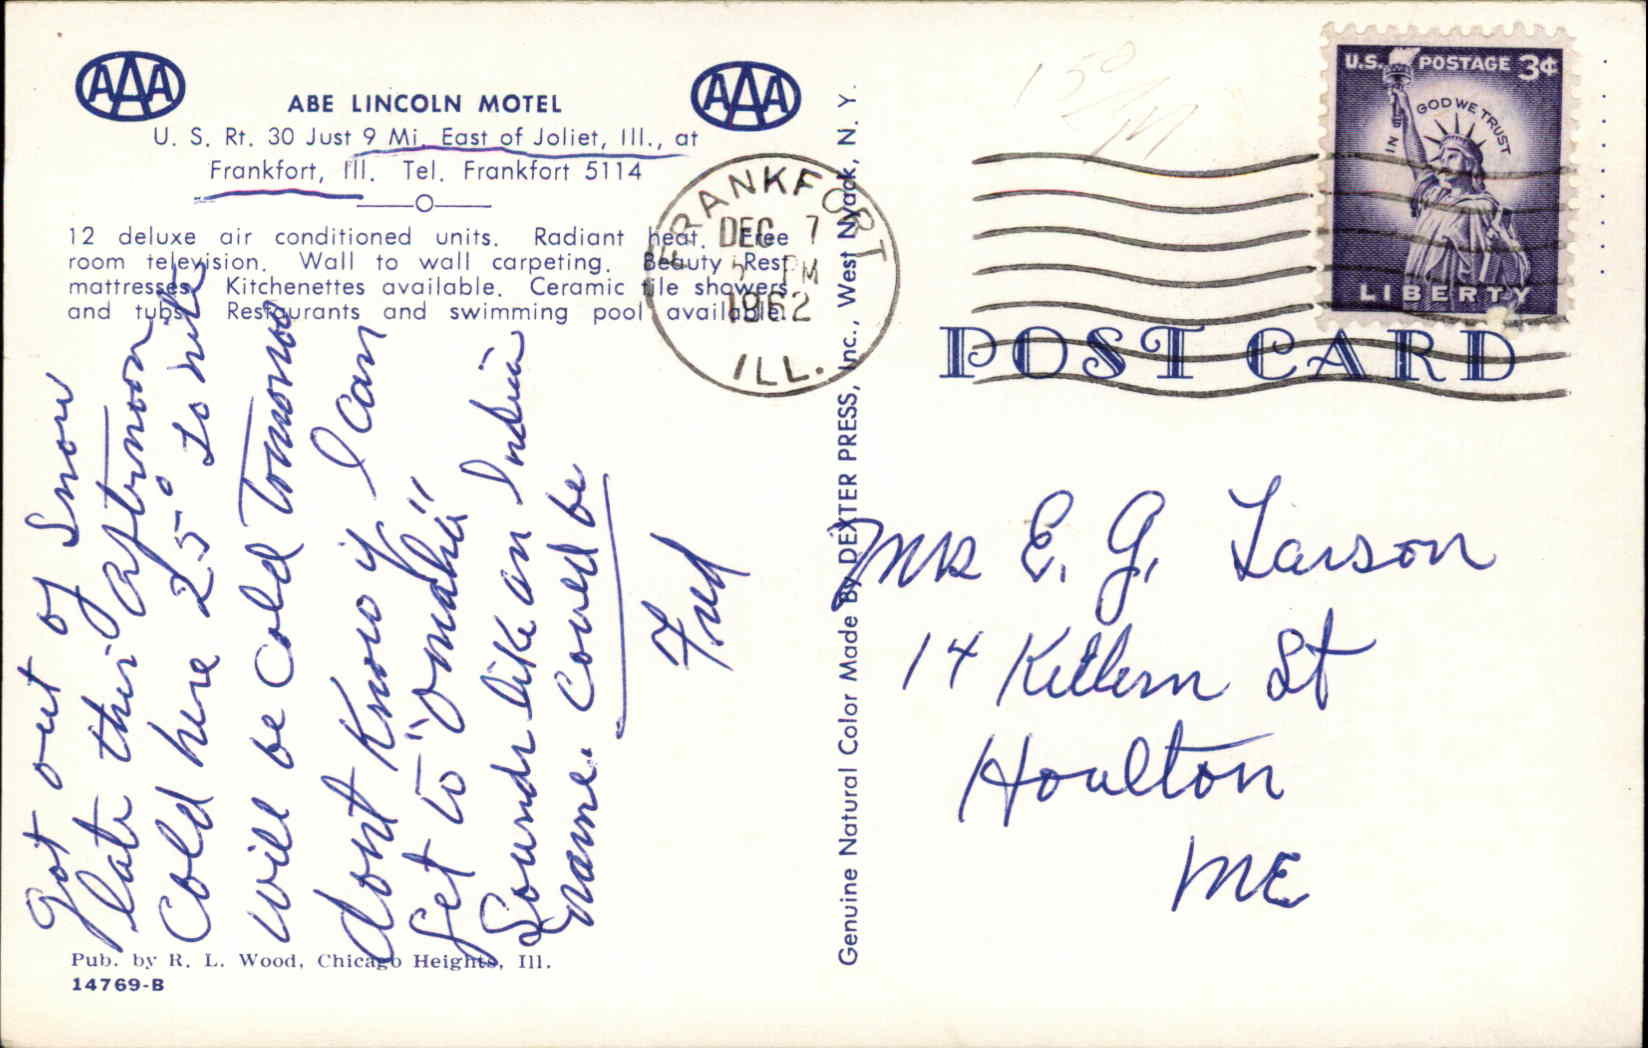 AAA
AAA
ABE LINCOLN MOTEL
U. S. Rt. 30 Just 9 Mi. East of Joliet, Ill., at
Frankfort, Ill. Tel. Frankfort 5114
12 deluxe air conditioned units. Radiant heat. Free
room television. Wall to wall carpeting. Beauty Rest
mattresses. Kitchenettes available. Ceramic tile showers
and tubs. Restaurants and swimming pool available.
Got out of Snow
late this afternoon
Cold here 25° to nite
will be Cold Tomorrow
dont Know if I can
get to "Omaha"
Sounds like an Indian
name. Could be
Fred
Pub. by R. L. Wood, Chicago Heights, Ill.
14769-B
Genuine Natural Color Made By DEXTER PRESS, Inc., West Nyack, N. Y.
FRANKFORT
DEC 7
PM
1962
ILL.
U.S. POSTAGE 3¢
IN GOD WE TRUST
LIBERTY
POST CARD
Mrs E. G. Larson
14 Killern St
Houlton
ME